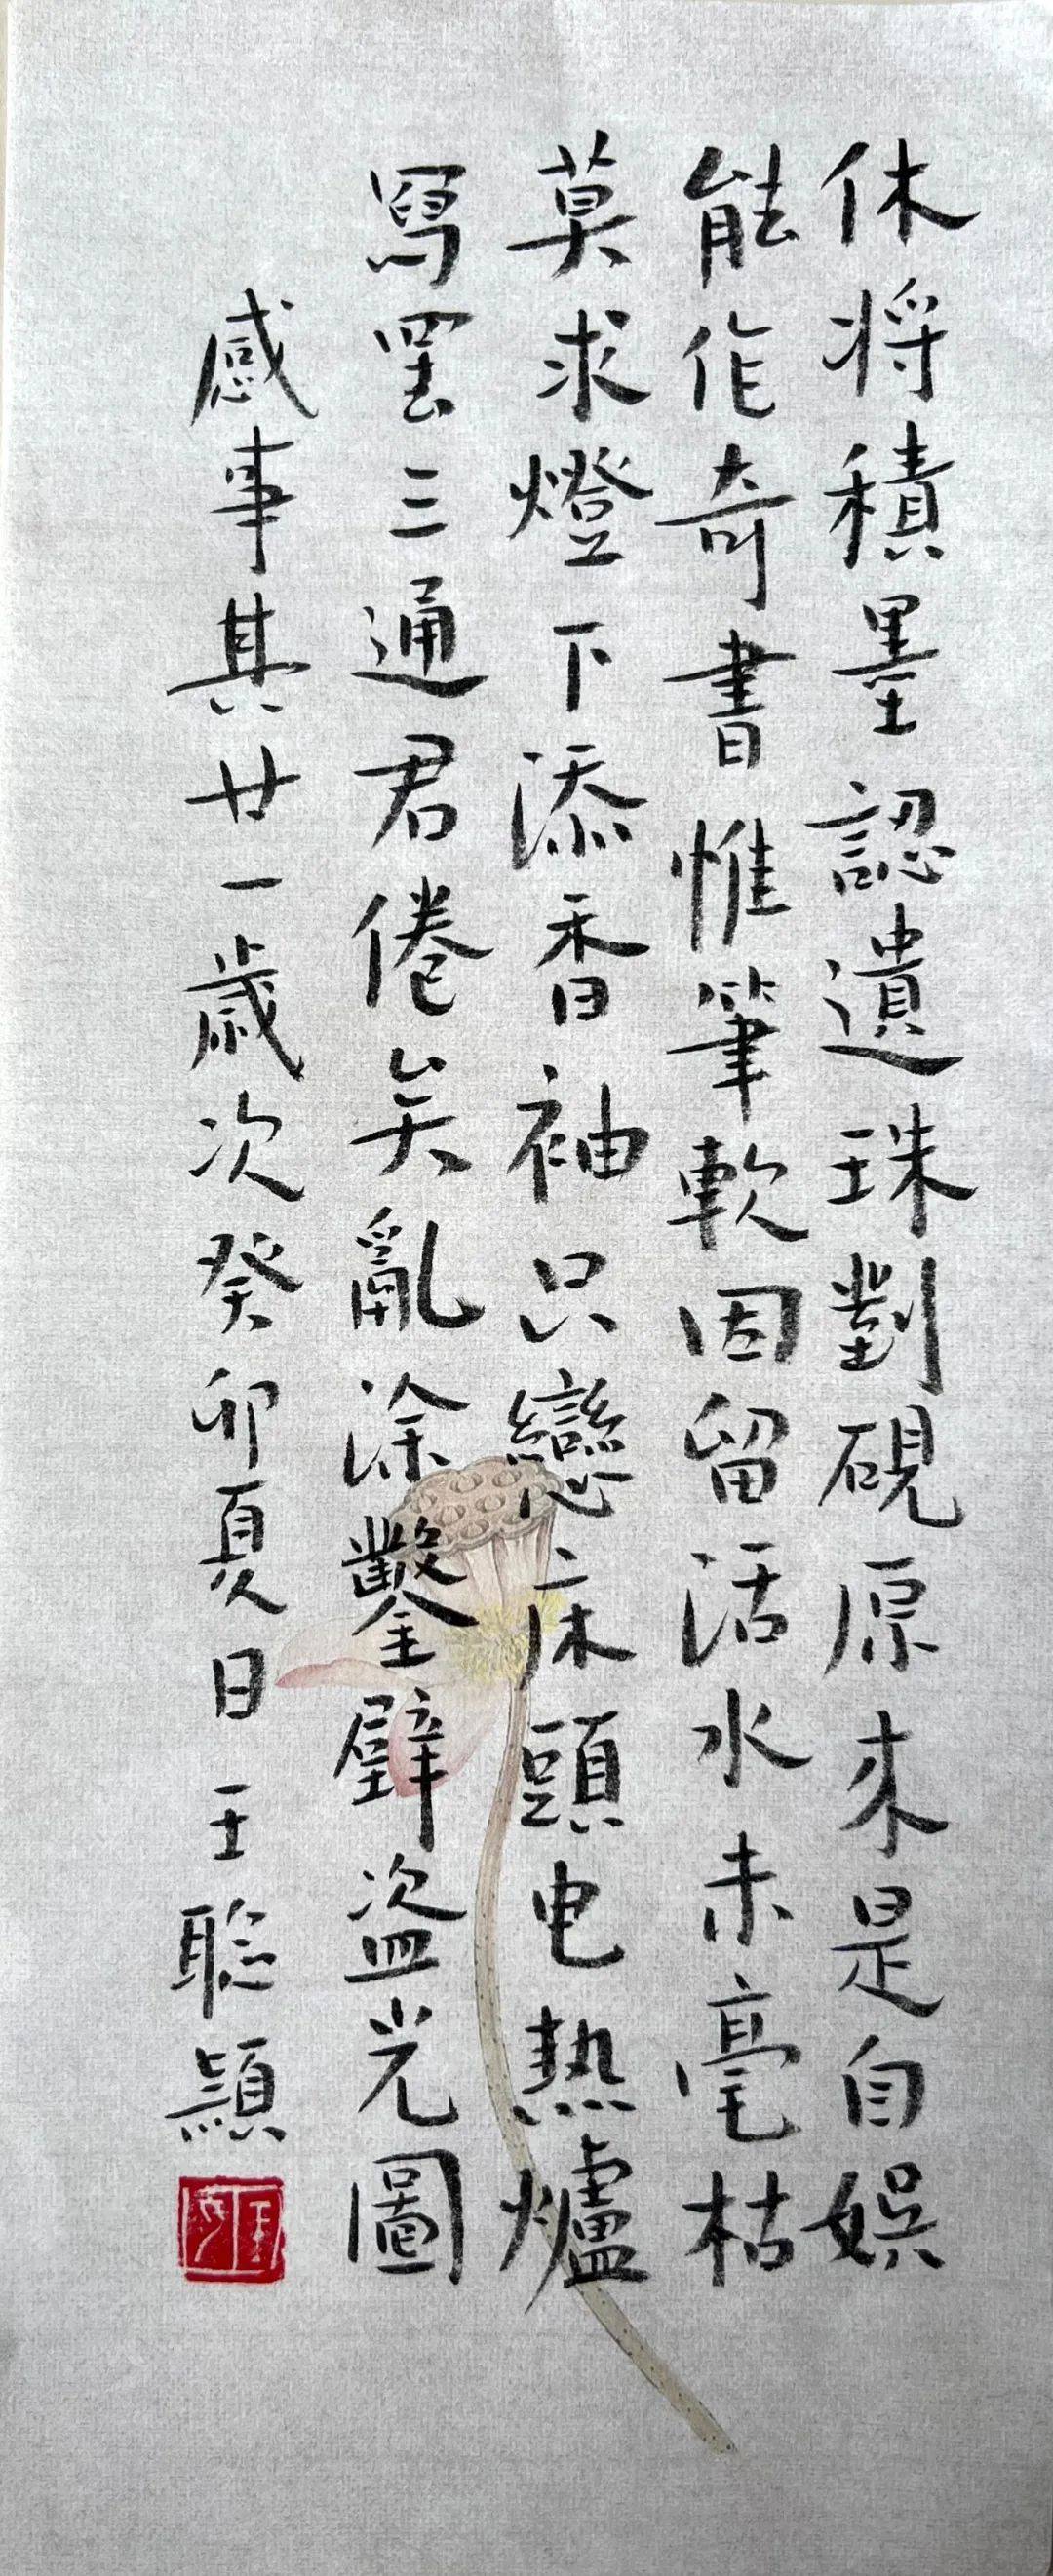 休将積墨認遺珠對硯原来是自娯
能作奇書惟筆軟因留活水未毫枯
莫求燈下添香袖只戀床頭电热爐
寫罷三通君倦矣亂涂鑿壁盗光圖
感事其廿一歲次癸卯夏日王聡穎